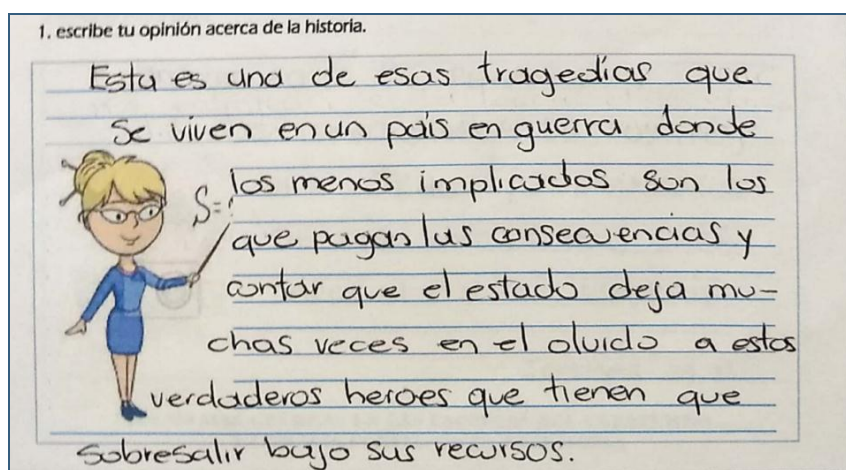 1. escribe tu opinión acerca de la historia.
Esta es una de esas tragedias que
se viven en un pais en guerra donde
los menos implicados son los
S=
que pagan las consecuencias y
contar que el estado deja mu-
chas veces en el olvido a estos
verdaderos heroes que tienen que
sobresalir bajo sus recursos.